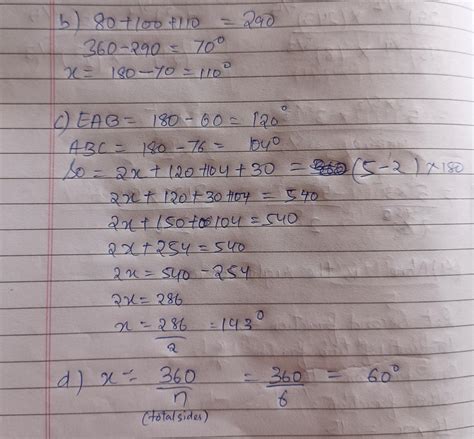 b) 80+100+110 = 290
360-290 = 70°
x = 180-70 = 110°
c) EAB = 180 - 60 = 120°
ABC = 180 - 76 = 104°
So = 2x + 120 + 104 + 30 = (5-2) × 180
2x + 120 + 30 + 104 = 540
2x + 150 + 104 = 540
2x + 254 = 540
2x = 540 - 254
2x = 286
x = 286/2 = 143°
d) x = 360/n = 360/6 = 60°
(total sides)